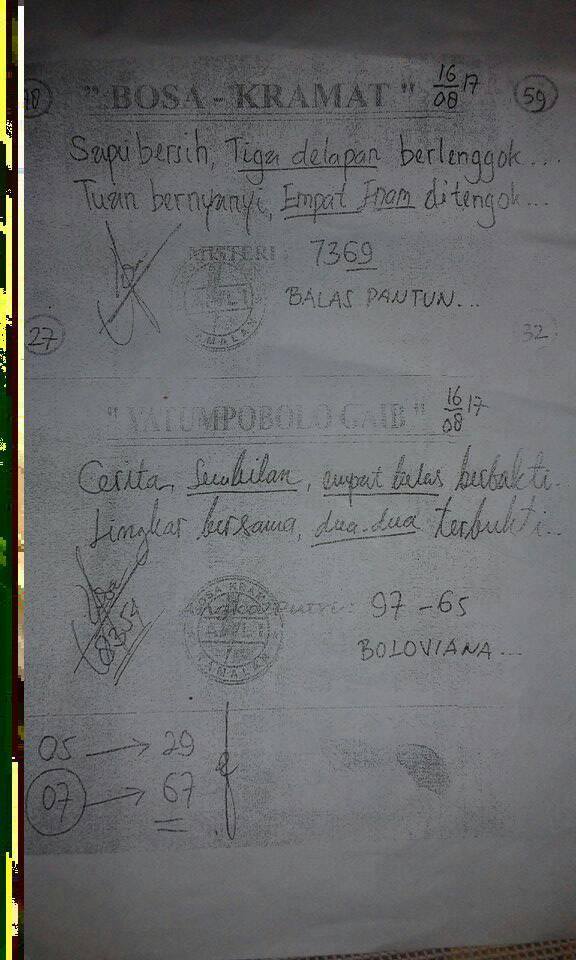 " BOSA - KRAMAT " 16/08 17 59
Sapu bersih, Tiga delapan berlenggok....
Tuan bernyanyi, Empat Enam ditengok...
MISTERI : 7369
BALAS PANTUN...
27 32
" YATUMPOBOLO GAIB " 16/08 17
Cerita, Sembilan, empat belas berbakti.
Lingkar bersama, dua-dua terbukti...
Angka Putri: 97 - 65
8354
BOLOVIANA...
05 → 29
07 → 67